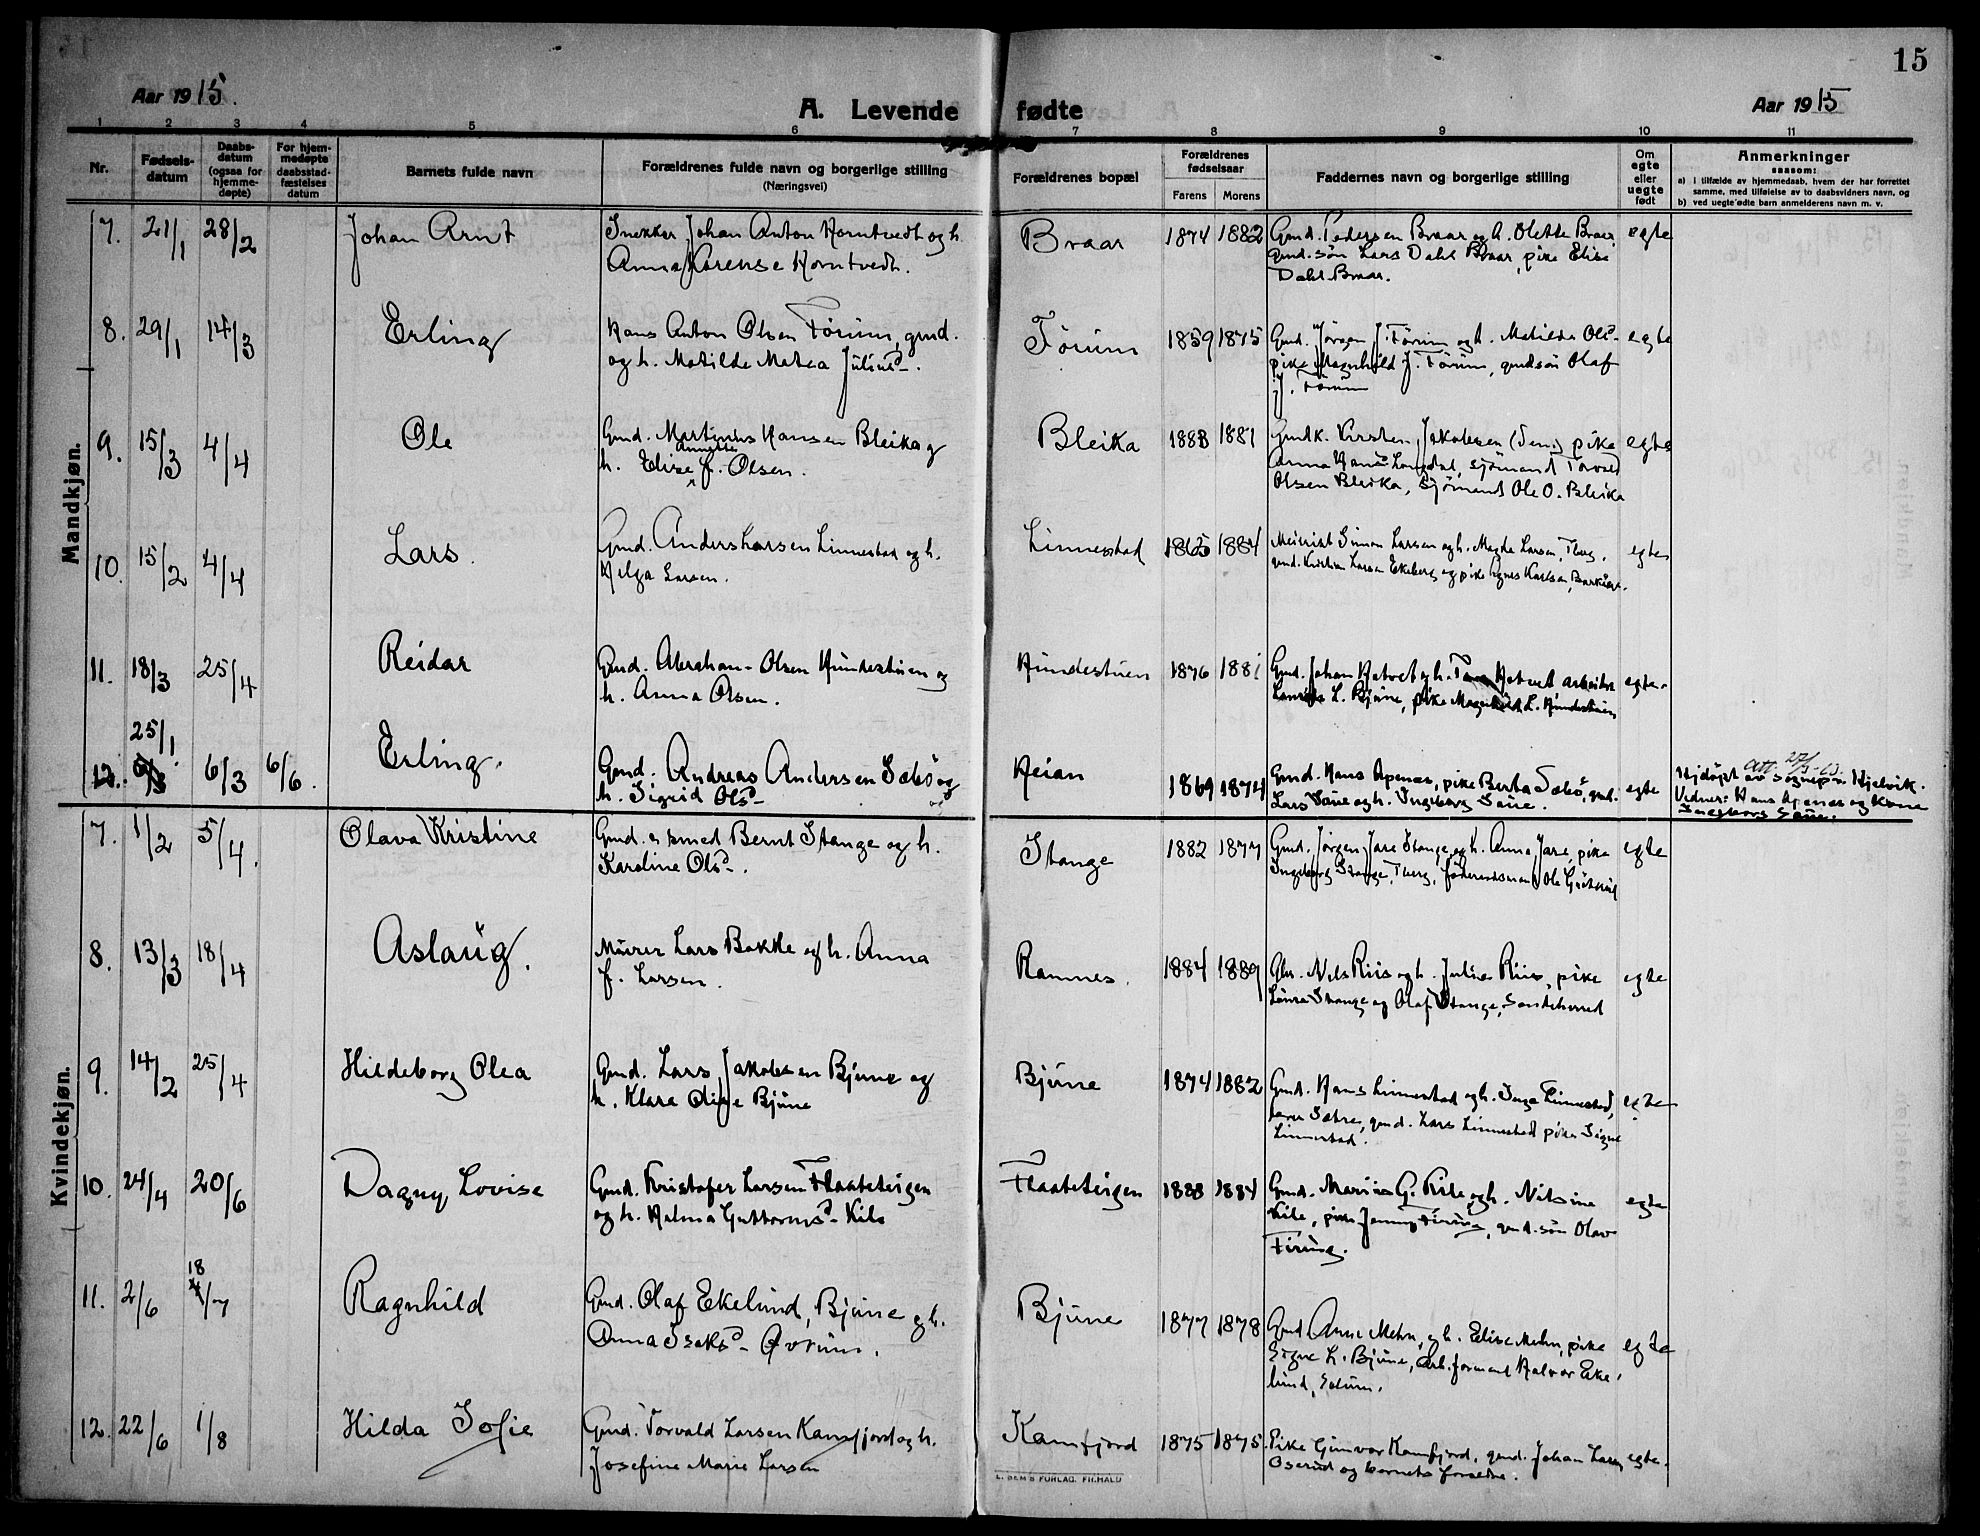 15
Aar 1915.
A. Levende fødte
Aar 1915
1 2 3 4 5 6 7 8 9 10 11
Nr.
Fødsels-
datum
Daabs-
datum
(ogsaa for
hjemme-
døpte)
For hjem-
medøpte
daabsstad-
fæstelses
datum
Barnets fulde navn
Forældrenes fulde navn og borgerlige stilling
(Næringsvei)
Forældrenes bopæl
Forældrenes
fødselsaar
Farens Morens
Faddernes navn og borgerlige stilling
Om
egte
eller
uegte
født
Anmerkninger
saasom:
a) i tilfælde av hjemmedaab, hvem der har forrettet
samme, med tilføielse av to daabsvidners navn, og
b) ved uegte fødte barn anmelderens navn m. v.
Mandkjøn.
7. 21/1 28/2 Johan Arnt Snekker Johan Anton Horntvedt og h. Braar 1874 1882 Gmd. Pedersen Braar og h. Olette Braar egte
Anna Karense Horntvedt. gmd. søn Lars Dahl Braar, pike Elise
Dahl Braar.
8. 29/1 14/3 Erling Hans Anton Olsen Førum, gmd. Førum 1859 1875 Gmd. Jørgen J. Førum og h. Matilde Ols- egte
og h. Matilde Matea Juliusd-. pike Magnhild J. Førum, gmdsøn Olaf
J. Førum
9. 15/3 4/4 Ole Gmd. Martinius Hansen Bleika og Bleika 1883 1881 Gmdk. Kirsten Jakobsen (Sem) pike egte
h. Elise Annette f. Olsen. Anna Langdal, sjømand Torvald
Olsen Bleika, sjømand Ole O. Bleika
10. 15/2 4/4 Lars. Gmd. Anders Larsen Linnestad og h. Linnestad 1865 1884 Meierist Simon Larsen og h. Magda Larsen, Tberg. egte
Helga Larsen. gmd. Kristian Larsen Ekeberg og pike Agnes Karlsen,
11. 18/3 25/4 Reidar Gmd. Abraham Olsen Hundestuen og Hundestuen 1876 1881 Gmd. Johan Hotvet og h. Hotvet arbeider egte.
h. Anna Olsen. L. Bjune, pike Magnhild L. Hundestuen
12. 25/1 6/3 6/6. Erling. Gmd. Andreas Andersen Sæbø og Heian 1869 1874 Gmd. Hans Apenæs, pike Berta Sæbø, gmd. egte Hjdøpt av sognepr. Hjelvik.
h. Sigrid Olsd- Lars Saue og h. Ingeborg Saue. Vidner: Hans Apenæs og kone
Ingeborg Saue.
Kvindekjøn.
7. 1/2 5/4. Olava Kristine Gmd. & smed Bernt Stange og h. Stange 1882 1877 Gmd. Jørgen Jare Stange og h. Anna Jare, pike egte
Karoline Olsd-. Ingeborg Stange, Tberg, føderaadsmand Ole
8. 13/3 18/4 Aslaug. Murer Lars Bakke og h. Anna Ramnes. 1884 1889 Gbr. Nils Riis og h. Julie Riis, pike egte
f. Larsen. Laura Stange og Olaf Stange, Sandeherred
9. 14/2 25/4 Hildeborg Olea Gmd. Lars Jakobsen Bjune og Bjune 1874 1882 Gmd. Hans Linnestad og h. Inga Linnestad, egte
h. Klara Olise Bjune Sætre, gmd. Lars Linnestad pike Signe
Linnestad.
10. 24/4 20/6 Dagny Lovise Gmd. Kristofer Larsen Flaateteigen Flaateteigen 1883 1884 Gmd. Marius G. Kile og h. Nilsine egte
og h. Halma Guttormsd- Kile Kile, pike Jenny Firing, gmd. søn Olav
Firing.
11. 2/6 18/7 Ragnhild Gmd. Olaf Ekelund, Bjune og h. Bjune 1877 1878 Gmd. Arne Mehn, og h. Elise Mehn, pike egte
Anna Isaksd- Øvrum. Signe L. Bjune, arb. formand Halvor Eke-
lund, Solum.
12. 22/6 1/8 Hilda Sofie Gmd. Torvald Larsen Kamfjord og h. Kamfjord 1875 1875. Pike Gunvor Kamfjord, gmd. Johan Larsen egte.
Josefine Marie Larsen Oserud og barnets forældre.
E. SEM'S FORLAG. FR.HALD